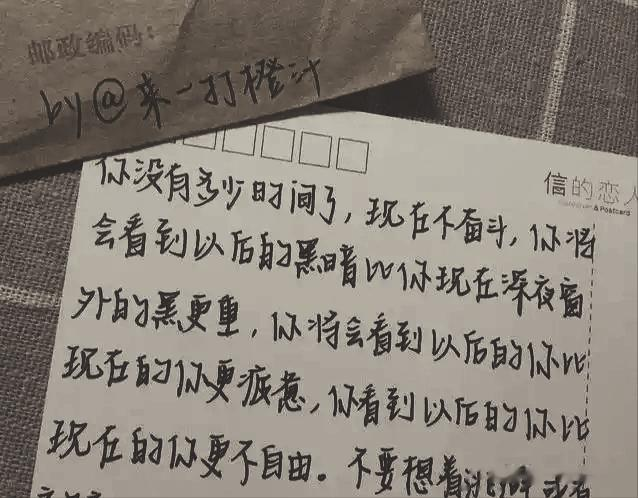 邮政编码:
by@来一打橙汁
信的恋人
& Postcard
你没有多少时间了,现在不奋斗,你将
会看到以后的黑暗比你现在深夜窗
外的黑更重,你将会看到以后的你比
现在的你更疲惫,你看到以后的你比
现在的你更不自由。不要想着